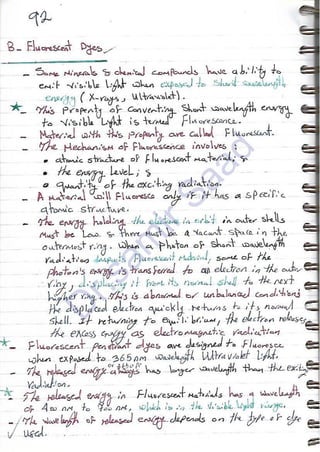 92
8 - Fluorescent Dyes
- Some minerals & chemical compounds have ability to
emit visible light when exposed to short wavelength
energy (X-rays, Ultraviolet).
- This property of converting short wavelength energy
to visible light is termed Fluorescence.
- Material with this property are called Fluorescent.
- The Mechanism of Fluorescence involves:
• atomic structure of fluorescent material, &
• the energy level, &
• quantity of the exciting radiation.
- A Material will fluoresce only if it has a specific
atomic structure.
- The energy holding the electrons in orbit in outer shells
must be low & there must be a vacant space in the
outermost ring. When a photon of short wavelength
radiation fluorescent Material, some of the
photon's energy is transferred to an electron in the outer
ring, displacing it from its normal shell to the next
higher ring. This is abnormal or unbalanced condition &
the displaced electron quickly returns to its normal
shell. If returning to equilibrium, the electron releases
the excess energy as electromagnetic radiation
- Fluorescent penetrant dyes are designed to fluoresce
when exposed to 365 nm wavelength Ultraviolet light.
- The released energy always has longer wavelength than the exit.
radiation.
- The released energy in Fluorescent Materials has a wavelength
of 400 nm to 700 nm, which is in the visible light range.
- The wavelength of released energy depends on the type of dye
used.